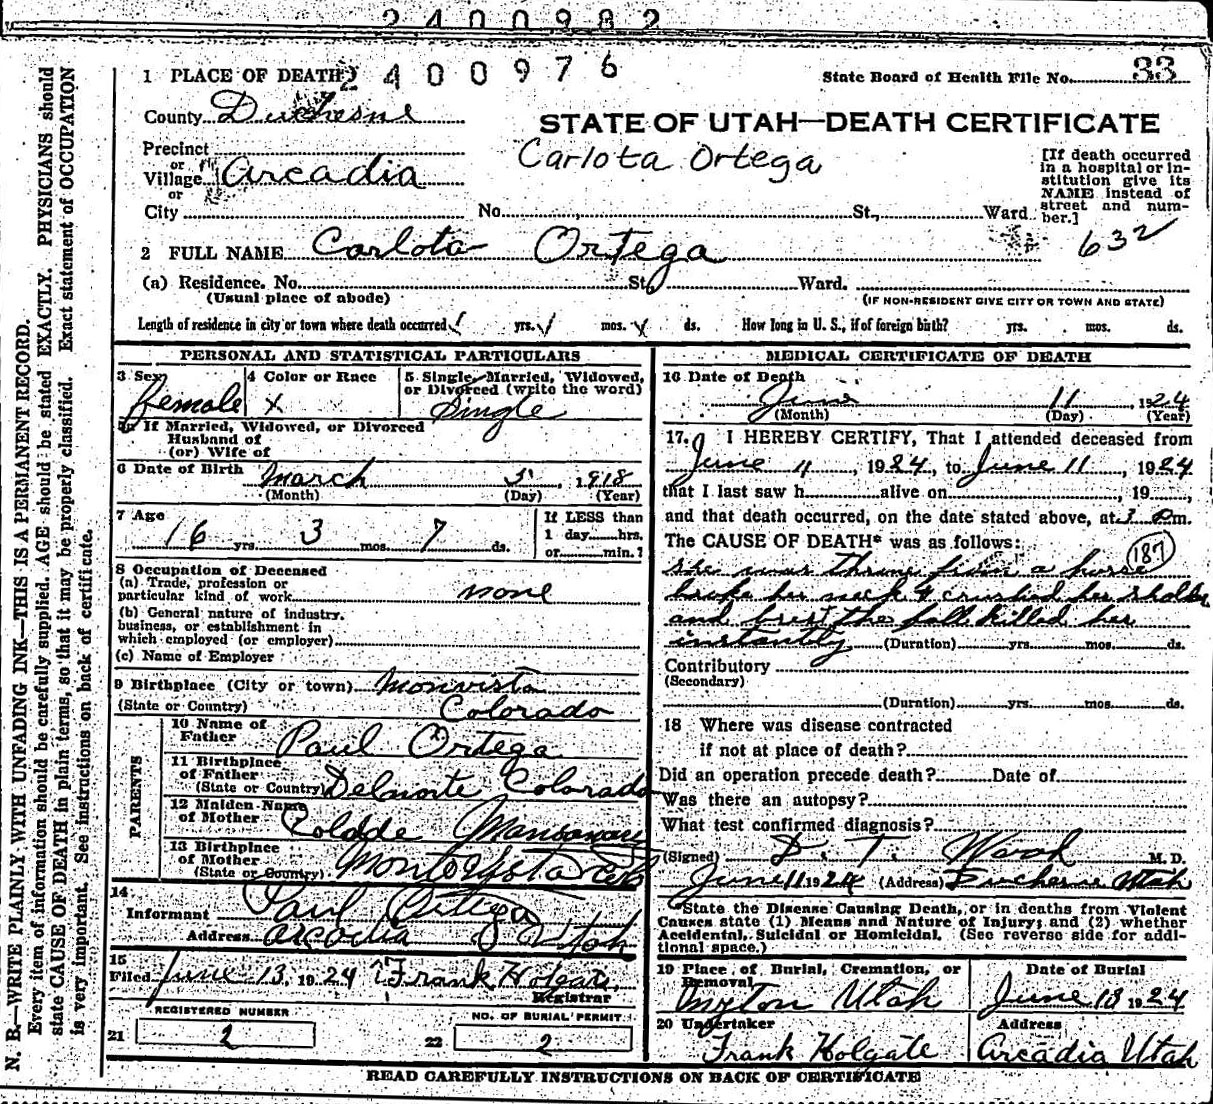 2400982
1 PLACE OF DEATH 2400976 State Board of Health File No. 33
County Duchesne
STATE OF UTAH—DEATH CERTIFICATE
Precinct
or
Village Arcadia
or
City No. St., Ward
Carlota Ortega
[If death occurred
in a hospital or in-
stitution give its
NAME instead of
street and num-
ber.]
632
2 FULL NAME Carlota Ortega
(a) Residence. No. St. Ward.
(Usual place of abode) (IF NON-RESIDENT GIVE CITY OR TOWN AND STATE)
Length of residence in city or town where death occurred yrs. mos. ds. How long in U. S., if of foreign birth? yrs. mos. ds.
PERSONAL AND STATISTICAL PARTICULARS
3 Sex 4 Color or Race 5 Single, Married, Widowed,
or Divorced (write the word)
Female X Single
If Married, Widowed, or Divorced
Husband of
(or) Wife of
6 Date of Birth March 5, 1918
(Month) (Day) (Year)
7 Age
16 yrs. 3 mos. 7 ds.
If LESS than
1 day hrs.
or min.?
8 Occupation of Deceased
(a) Trade, profession or
particular kind of work none
(b) General nature of industry.
business, or establishment in
which employed (or employer)
(c) Name of Employer
9 Birthplace (City or town) Monvista
(State or Country) Colorado
PARENTS
10 Name of
Father Paul Ortega
11 Birthplace
of Father
(State or Country) Delnorte Colorado
12 Maiden Name
of Mother
13 Birthplace
of Mother
(State or Country)
14
Informant Paul Ortega
Address Arcadia Utah
15
Filed June 13, 1924 Frank Holgate
Registrar
REGISTERED NUMBER NO. OF BURIAL PERMIT
21 2 22 2
MEDICAL CERTIFICATE OF DEATH
16 Date of Death
June 11, 1924
(Month) (Day) (Year)
17. I HEREBY CERTIFY, That I attended deceased from
June 11, 1924, to June 11, 1924
that I last saw h alive on , 19
and that death occurred, on the date stated above, at 3 Pm.
The CAUSE OF DEATH* was as follows:
187
she was throne from a horse
broke her neck & crushed her
and the fall killed her
instantly (Duration) yrs. mos. ds.
Contributory
(Secondary)
(Duration) yrs. mos. ds.
18 Where was disease contracted
if not at place of death?
Did an operation precede death? Date of
Was there an autopsy?
What test confirmed diagnosis?
(Signed) D. T. Wood M. D.
June 11 1924 (Address) Duchesne Utah
State the Disease Causing Death, or in deaths from Violent
Causes state (1) Means and Nature of Injury; and (2) whether
Accidental, Suicidal or Homicidal. (See reverse side for addi-
tional space.)
19 Place of Burial, Cremation, or
Removal Date of Burial
Myton Utah June 13 1924
20 Undertaker Address
Frank Holgate Arcadia Utah
READ CAREFULLY INSTRUCTIONS ON BACK OF CERTIFICATE
N. B.—WRITE PLAINLY WITH UNFADING INK—THIS IS A PERMANENT RECORD.
Every item of information should be carefully supplied. AGE should be stated EXACTLY. PHYSICIANS should
state CAUSE OF DEATH in plain terms, so that it may be properly classified. Exact statement of OCCUPATION
is very important. See instructions on back of certificate.